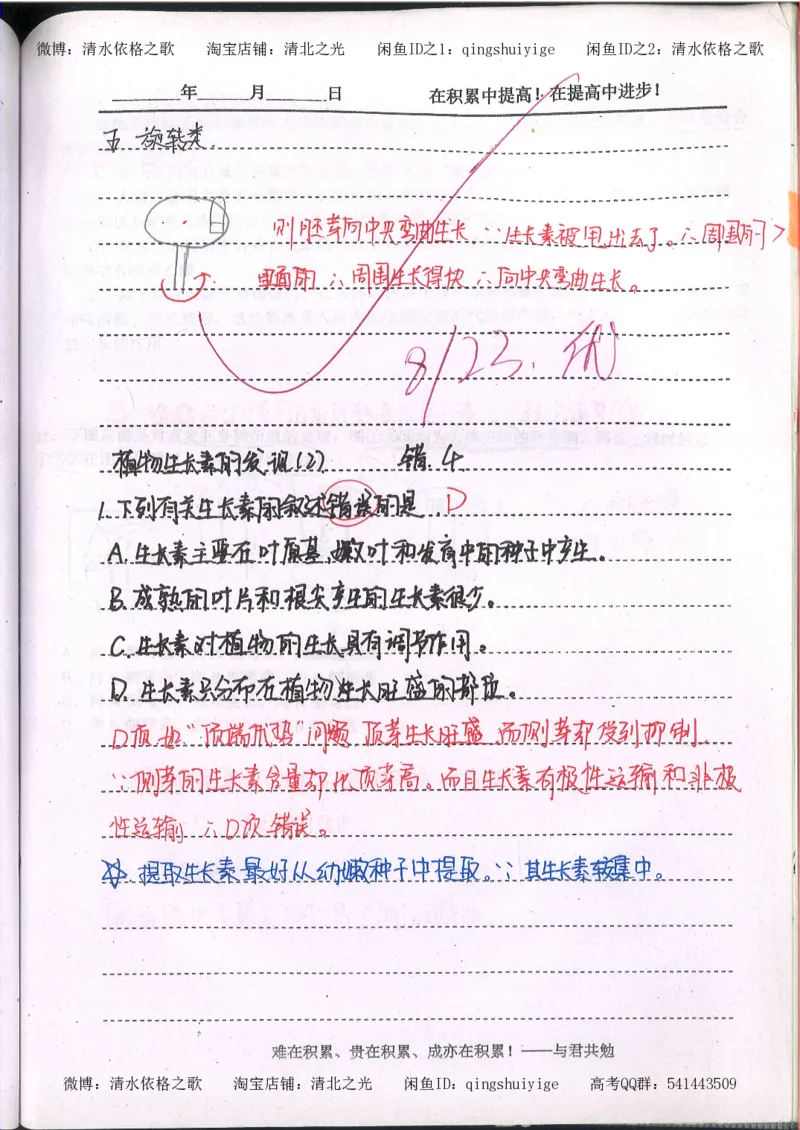 微博：清水依格之歌 淘宝店铺：清北之光 闲鱼ID之1：qingshuiyige 闲鱼ID之2：清水依格之歌
年 月 日 在积累中提高！在提高中进步！
五. 旋转类.
则胚芽向中央弯曲生长 ∵生长素被甩出去了。∴周围的>
里面的 ∴周围生长得快 ∴向中央弯曲生长。
8/23. 优
植物生长素的发现(2) 错. 4
1.下列有关生长素的叙述错误的是 D
A.生长素主要在叶原基、嫩叶和发育中的种子中产生。
B.成熟的叶片和根尖产生的生长素很少。
C.生长素对植物的生长具有调节作用。
D.生长素只分布在植物生长旺盛的部位。
D项 如“顶端优势”问题 顶芽生长旺盛 而侧芽却受到抑制.
∵侧芽的生长素含量却比顶芽高。而且生长素有极性运输和非极
性运输 ∴D项错误。
提取生长素最好从幼嫩种子中提取。∵其生长素较集中。
难在积累、贵在积累、成亦在积累！——与君共勉
微博：清水依格之歌 淘宝店铺：清北之光 闲鱼ID：qingshuiyige 高考QQ群：541443509